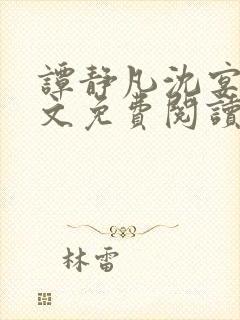 譚靜凡沈宴
文免費閱讀
林雷